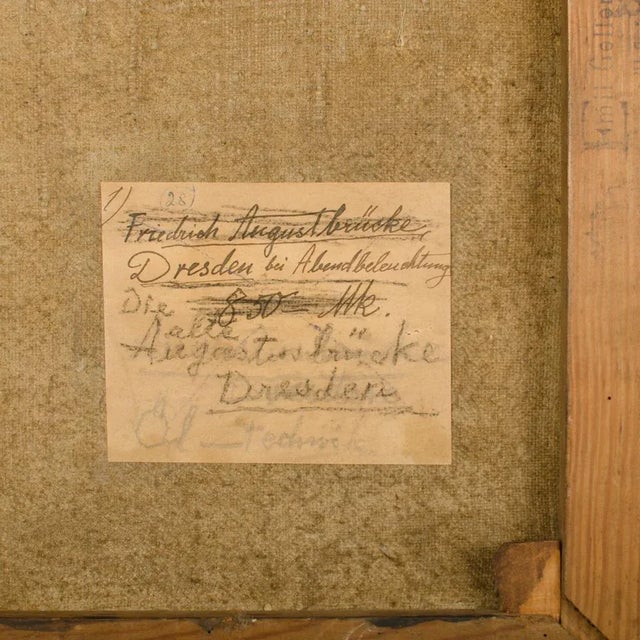 1) (28)
Friedrich Augustbrücke,
Dresden bei Abendbeleuchtung
850 Mk.
Die
alte
Augustusbrücke
Dresden
Öl-technik
Emil